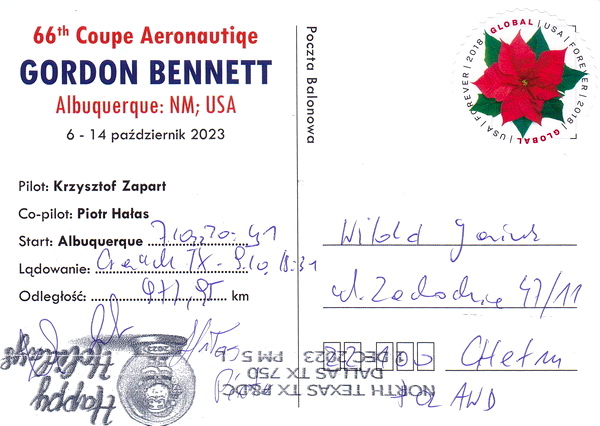 66th Coupe Aeronautiqe
GORDON BENNETT
Albuquerque: NM; USA
6 - 14 październik 2023
Pilot: Krzysztof Zapart
Co-pilot: Piotr Hałas
Start: Albuquerque
Lądowanie: TX - 9.10, 18:31
Odległość: 971,95 km
Poczta Balonowa
GLOBAL | USA | FOREVER | 2018 | GLOBAL | USA | FOREVER | 2018
Witold
ul. Zachodnia 47/11
22-100 Chełm
POLAND
Happy
Holidays
NORTH TEXAS TX P&DC
DALLAS TX 750
DEC 2023 PM 5